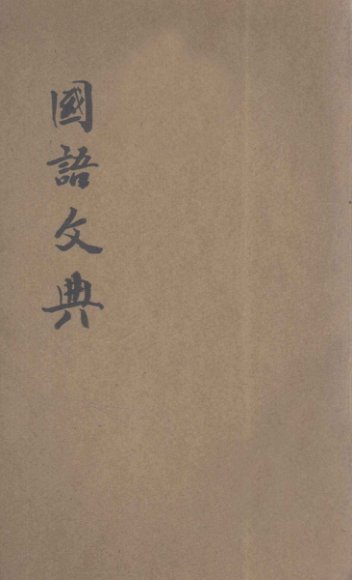 國語文典